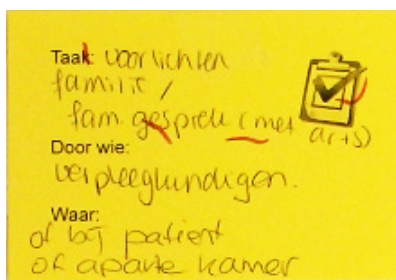 Taak: voorlichten
familie /
fam. gesprek (met arts)
Door wie:
verpleegkundigen.
Waar:
of bij patiënt
of aparte kamer